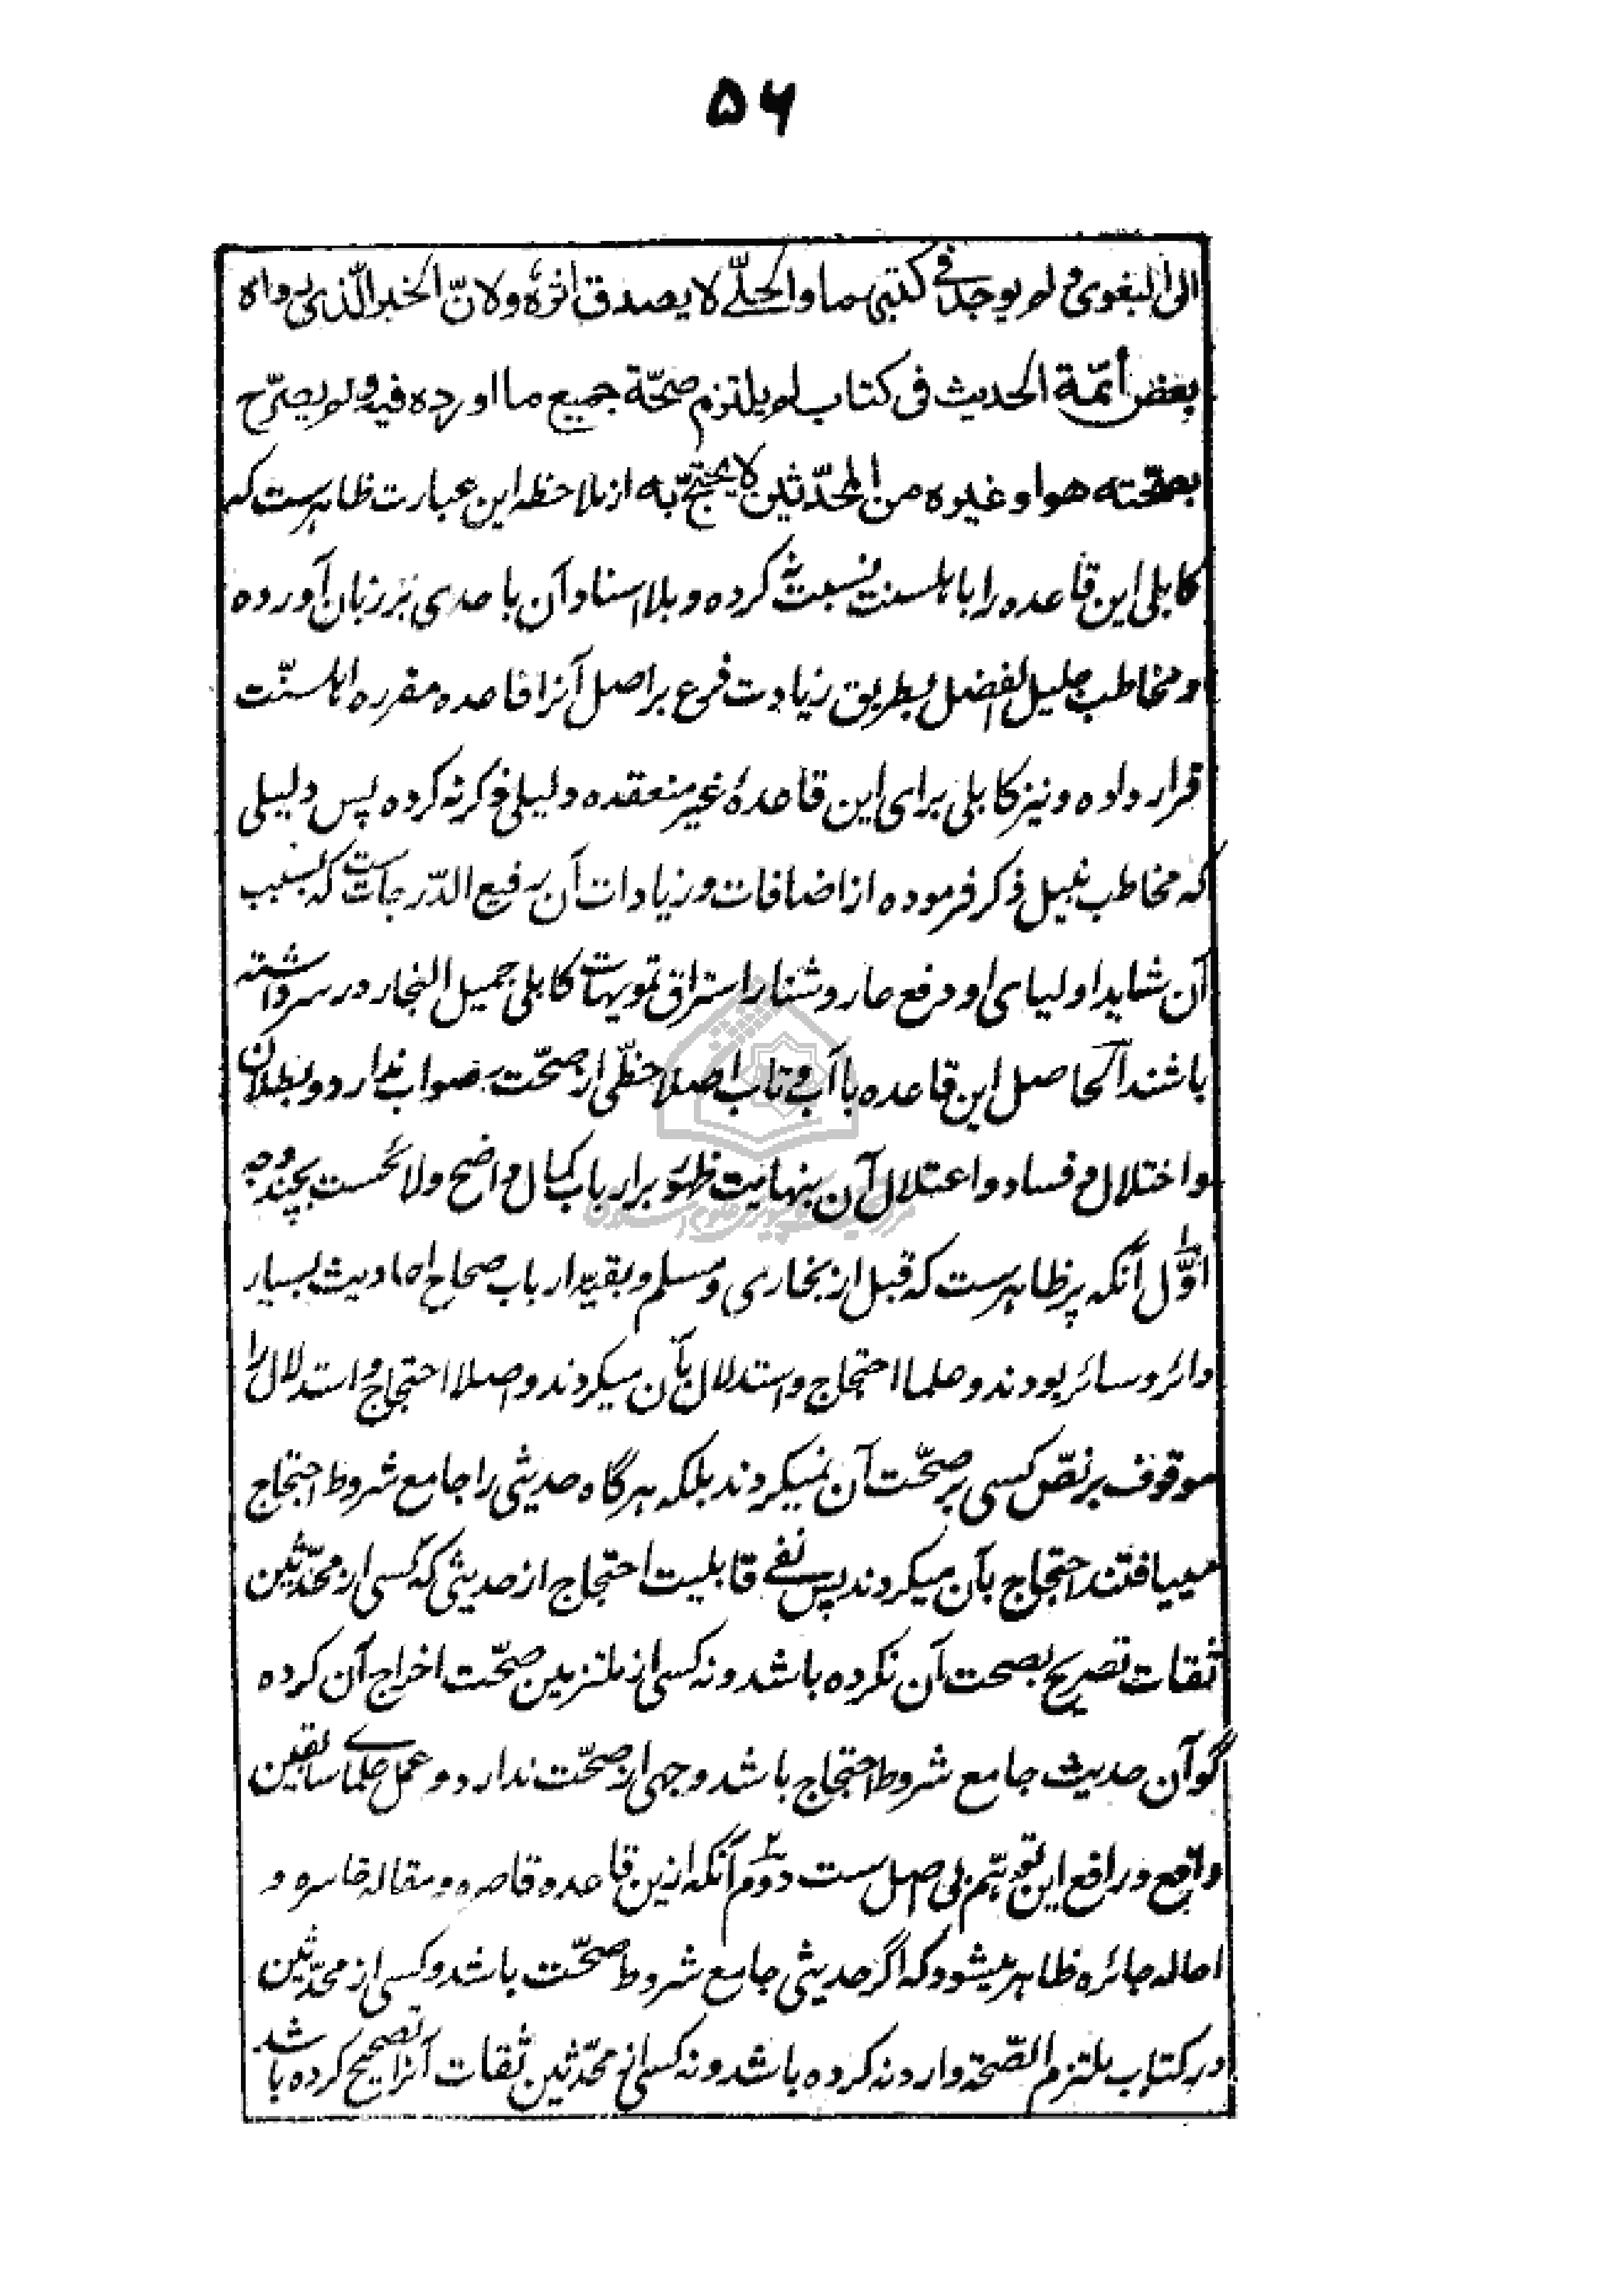 ۵۶
الی البغوی و لم یوجد فی کتبهما و الحلّی لا یصدق اثره و لانّ الخبر الّذی رواه
بعض أئمّة الحدیث فی کتاب لم یلتزم صحّة جمیع ما اورده فیه و لم یصرّح
بصحّته هو او غیره من المحدّثین لا یحتجّ به از ملاحظه این عبارت ظاهرست که
کابلی این قاعده را باهلسنت نسبت نه کرده و بلا اسناد آن باحدی بر زبان آورده
و مخاطب جلیل الفضل بطریق زیادت فرع بر اصل آنرا قاعده مقرره اهلسنّت
قرار داده و نیز کابلی برای این قاعدۀ غیر منعقده دلیلی ذکر نه کرده پس دلیلی
که مخاطب نبیل ذکر فرموده از اضافات و زیادات آن رفیع الدّرجات ست که بسبب
آن شاید اولیای او دفع عار و شنار استراق تمویهات کابلی جمیل النجار در سر داشته
باشند الحاصل این قاعده با آب و تاب اصلا حظّی از صحّت و صواب ندارد و بطلان
و اختلال و فساد و اعتلال آن بنهایت ظهور بر ارباب کمال واضح و لائحست بچند وجه
اوّل آنکه پر ظاهرست که قبل از بخاری و مسلم و بقیه ارباب صحاح احادیث بسیار
دائر و سائر بودند و علما احتجاج و استدلال بآن میکردند و اصلا احتجاج و استدلال را
موقوف بر نصّ کسی بر صحّت آن نمیکردند بلکه هرگاه حدیثی را جامع شروط احتجاج
مییافتند احتجاج بآن میکردند پس نفی قابلیت احتجاج از حدیثی که کسی از محدّثین
ثقات تصریح بصحت آن نکرده باشد و نه کسی از ملتزمین صحّت اخراج آن کرده
گو آن حدیث جامع شروط احتجاج باشد وجهی از صحّت ندارد و عمل علمای سابقین
واقع و رافع این توهّم بی اصل ست دوّم آنکه ازین قاعده قاصره و مقاله خاسره و
احاله جائره ظاهر میشود که اگر حدیثی جامع شروط صحّت باشد و کسی از محدّثین
در کتاب ملتزم الصّحة وارد نه کرده باشد و نه کسی از محدّثین ثقات آنرا تصحیح کرده باشد